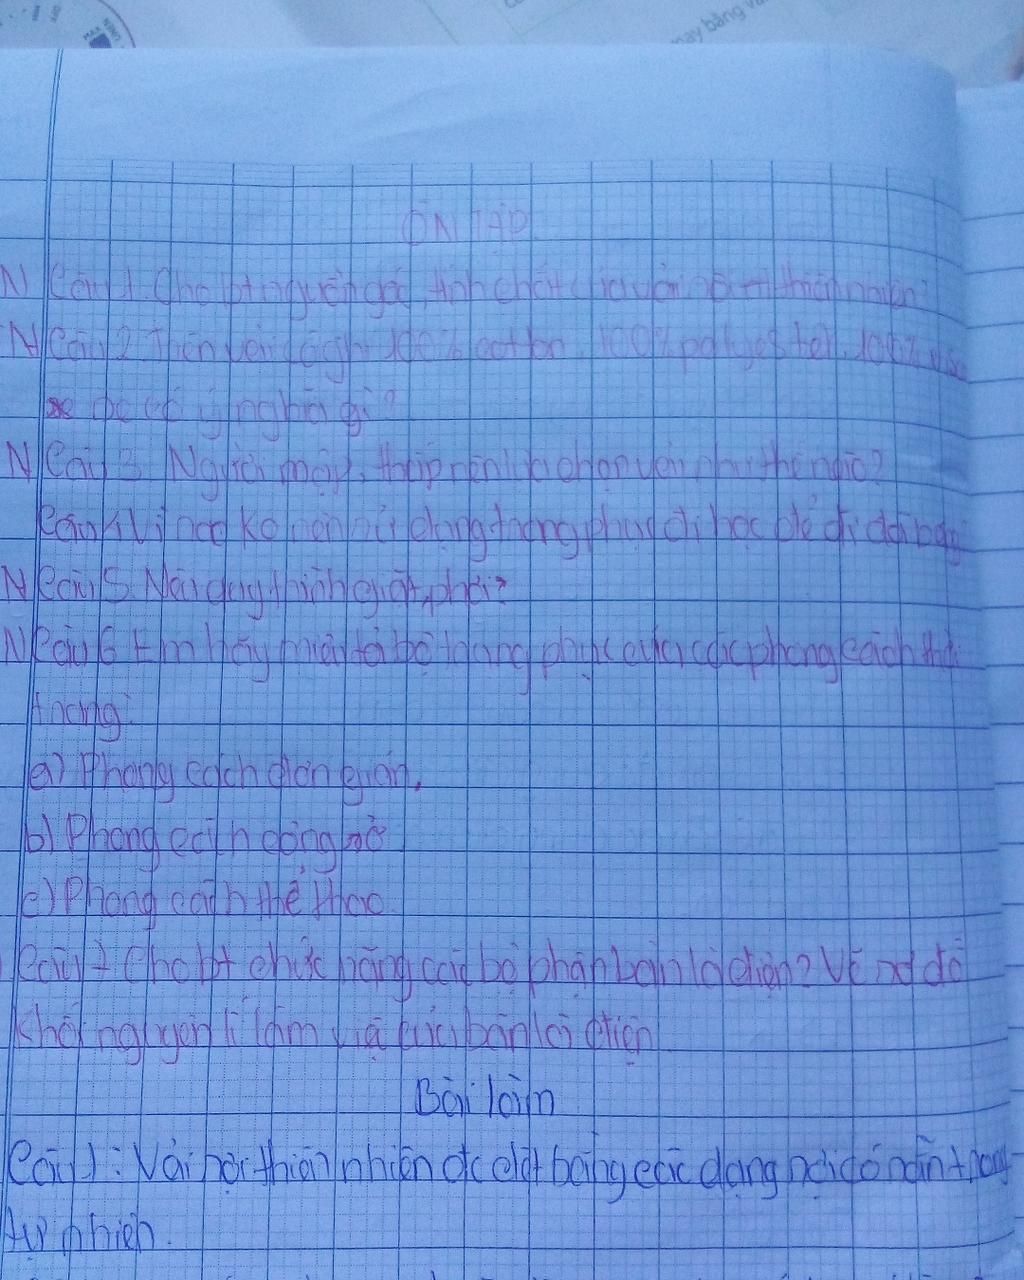 may bằng vải
ÔN TẬP
N Câu 1. Cho bt nguồn gốc, tính chất của vải sợi thiên nhiên?
N Câu 2. Trên vải có ghi 100% cotton, 100% polyester, 100% visco
se đc có ý nghĩa gì?
N Câu 3. Người mập, thấp nên lựa chọn vải như thế nào?
Câu 4. Vì sao ko nên sử dụng trang phục đi học để đi đá bóng
N Câu 5. Nêu quy trình giặt, phơi?
N Câu 6. Em hãy miêu tả bộ trang phục của các phong cách thời
trang:
a) Phong cách đơn giản.
b) Phong cách công sở
c) Phong cách thể thao.
Câu 7 Cho bt chức năng các bộ phận bàn là điện? Vẽ sơ đồ
khối nguyên lí làm việc của bàn là điện
Bài làm
Câu 1: Vải sợi thiên nhiên đc dệt bằng các dạng sợi có sẵn trong
tự nhiên.